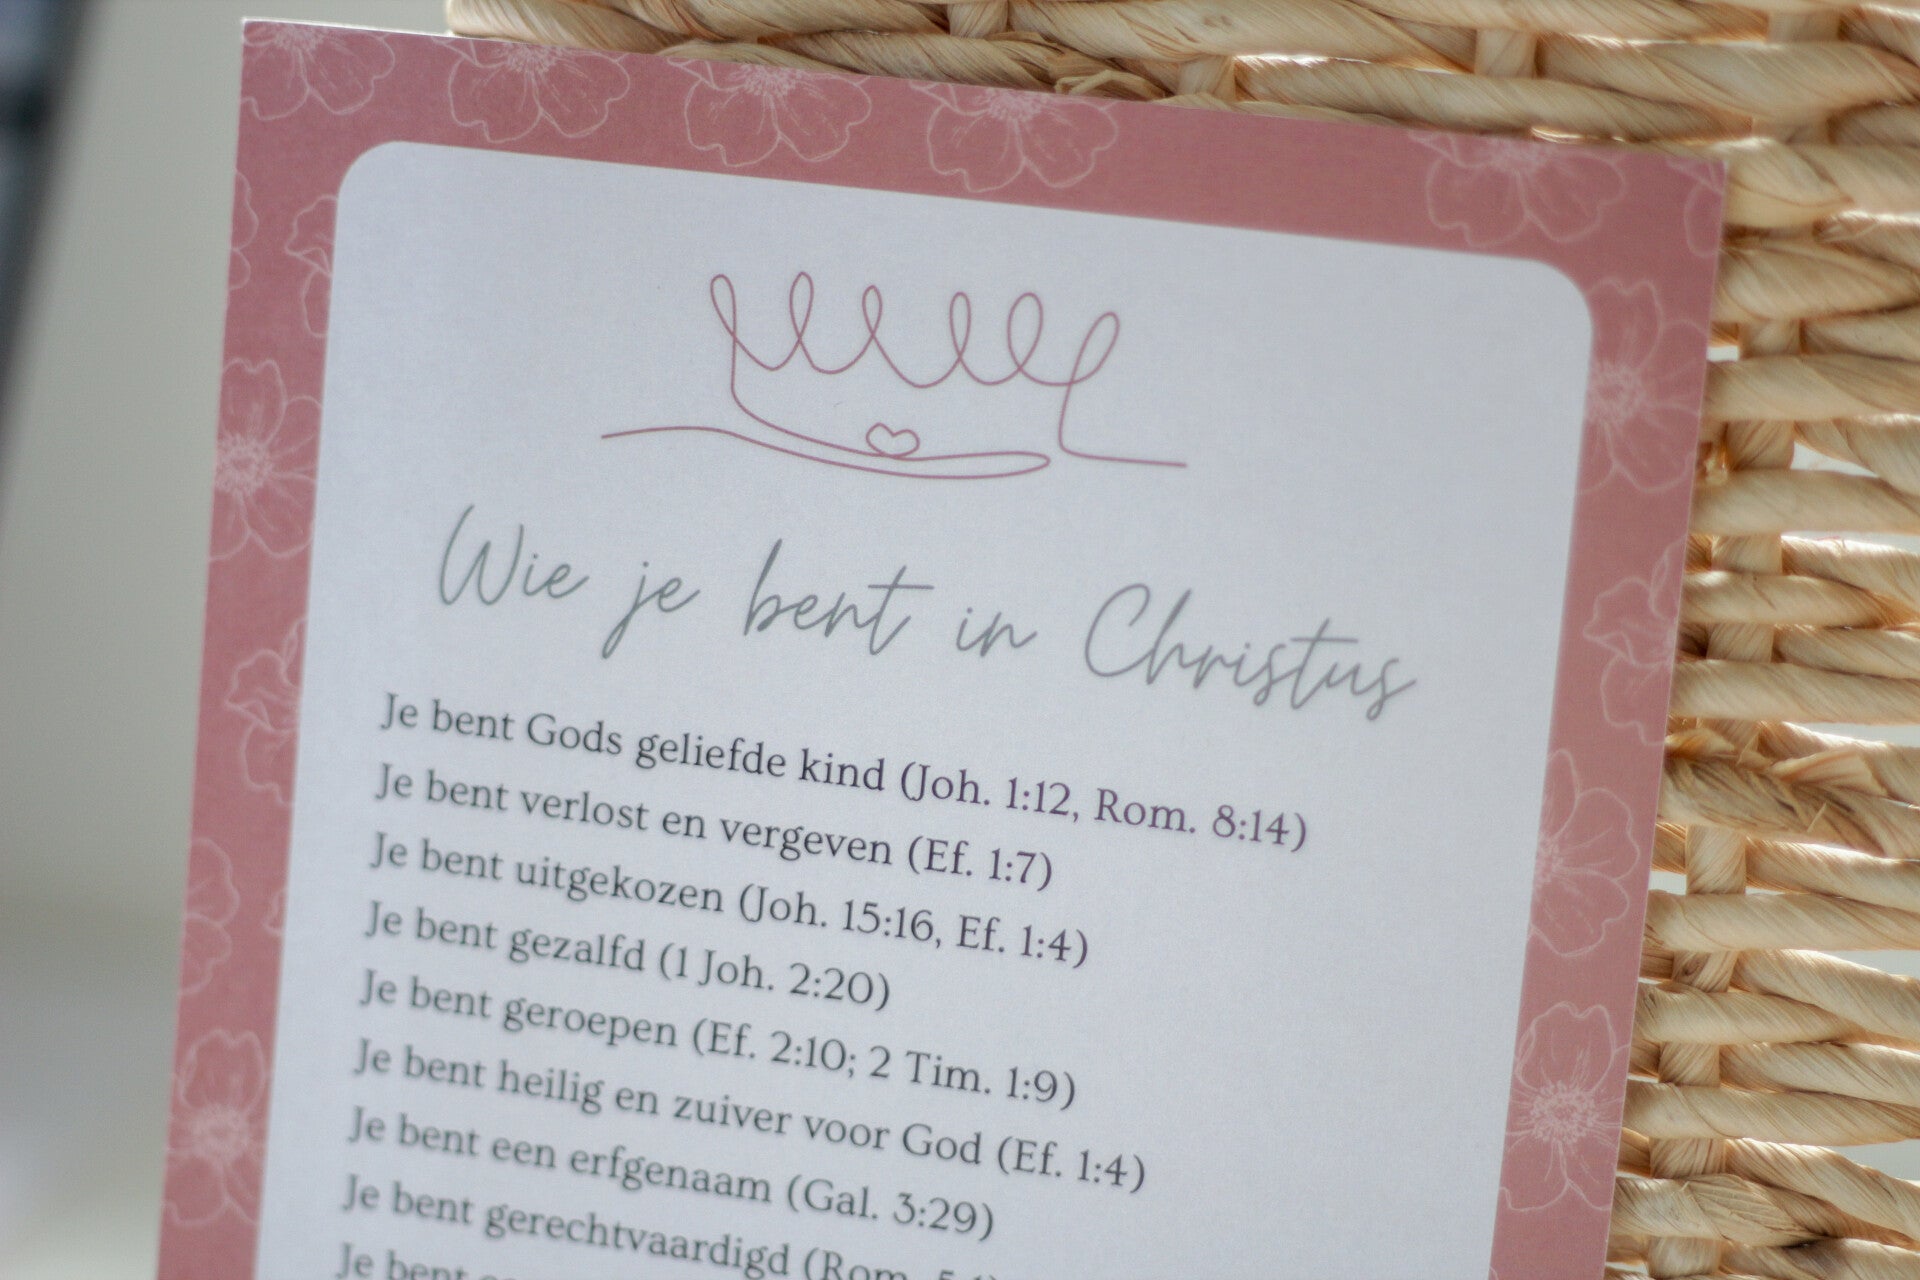 Wie je bent in Christus
Je bent Gods geliefde kind (Joh. 1:12, Rom. 8:14)
Je bent verlost en vergeven (Ef. 1:7)
Je bent uitgekozen (Joh. 15:16, Ef. 1:4)
Je bent gezalfd (1 Joh. 2:20)
Je bent geroepen (Ef. 2:10; 2 Tim. 1:9)
Je bent heilig en zuiver voor God (Ef. 1:4)
Je bent een erfgenaam (Gal. 3:29)
Je bent gerechtvaardigd (Rom. 5:1)
Je bent